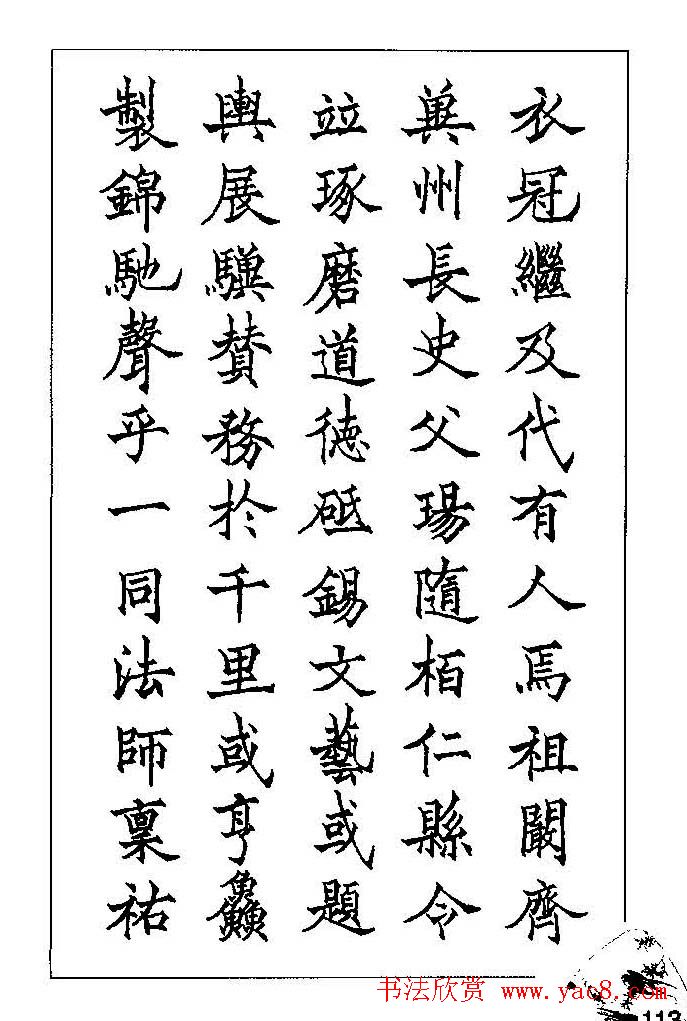 衣冠繼及代有人焉祖闞齊
兾州長史父瑒隨栢仁縣令
竝琢磨道德砥錫文藝或題
輿展驥賛務於千里或亨鱻
製錦馳聲乎一同法師稟祐
书法欣赏 www.yac8.com
113